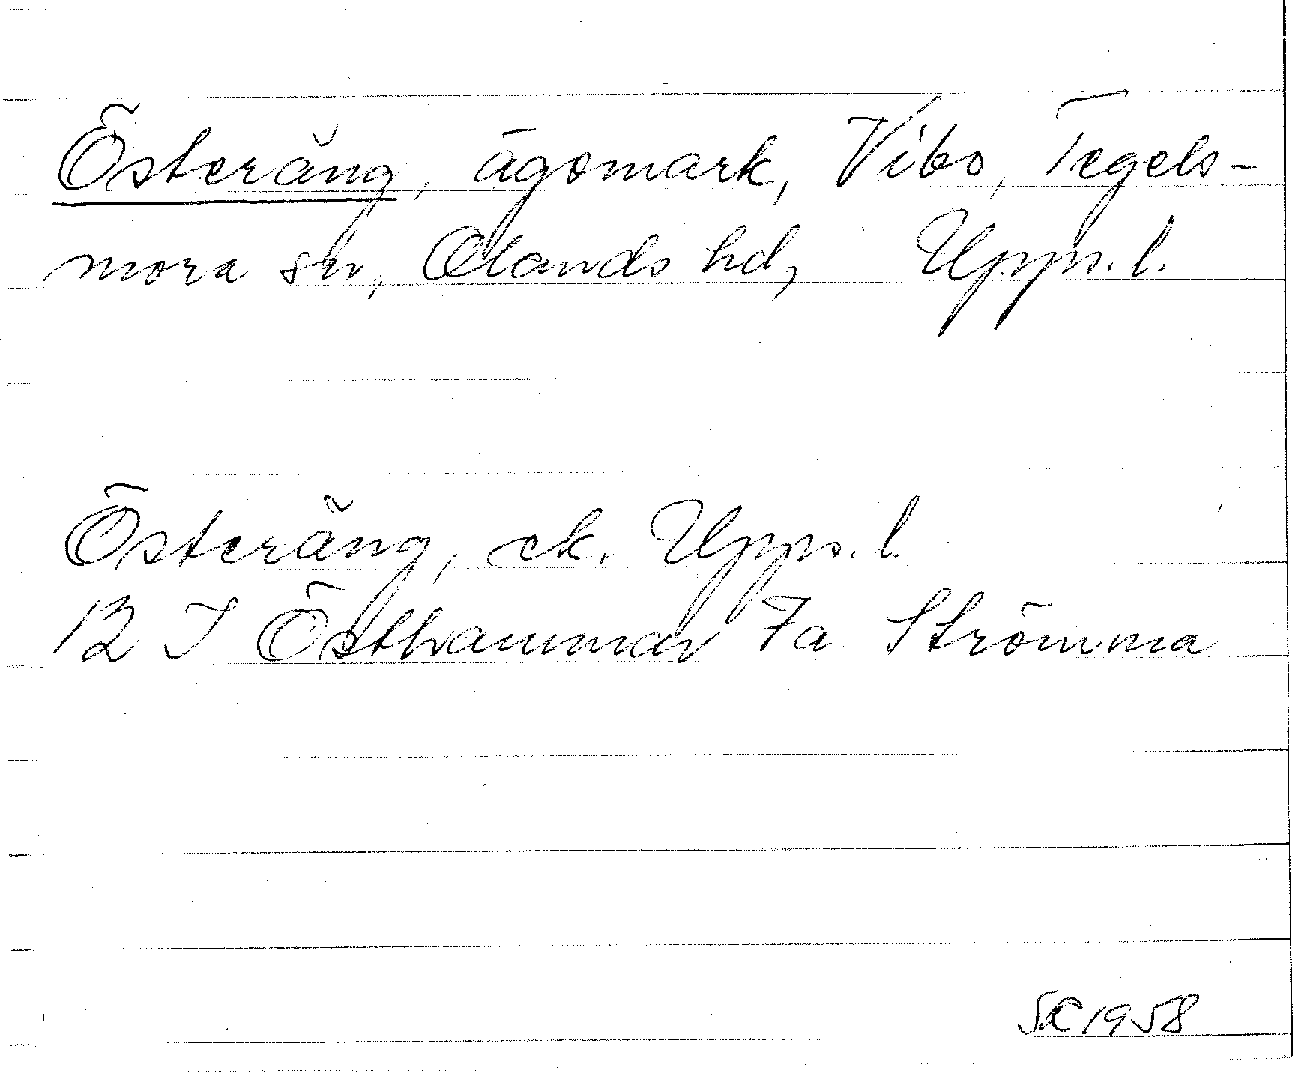 Österäng, ägomark, Vibo, Tegels-
mora sn, Olands hd, Upps. l.
Österäng, ek. Upps. l
12 I Östhammar 7a Strömma
SK 1958